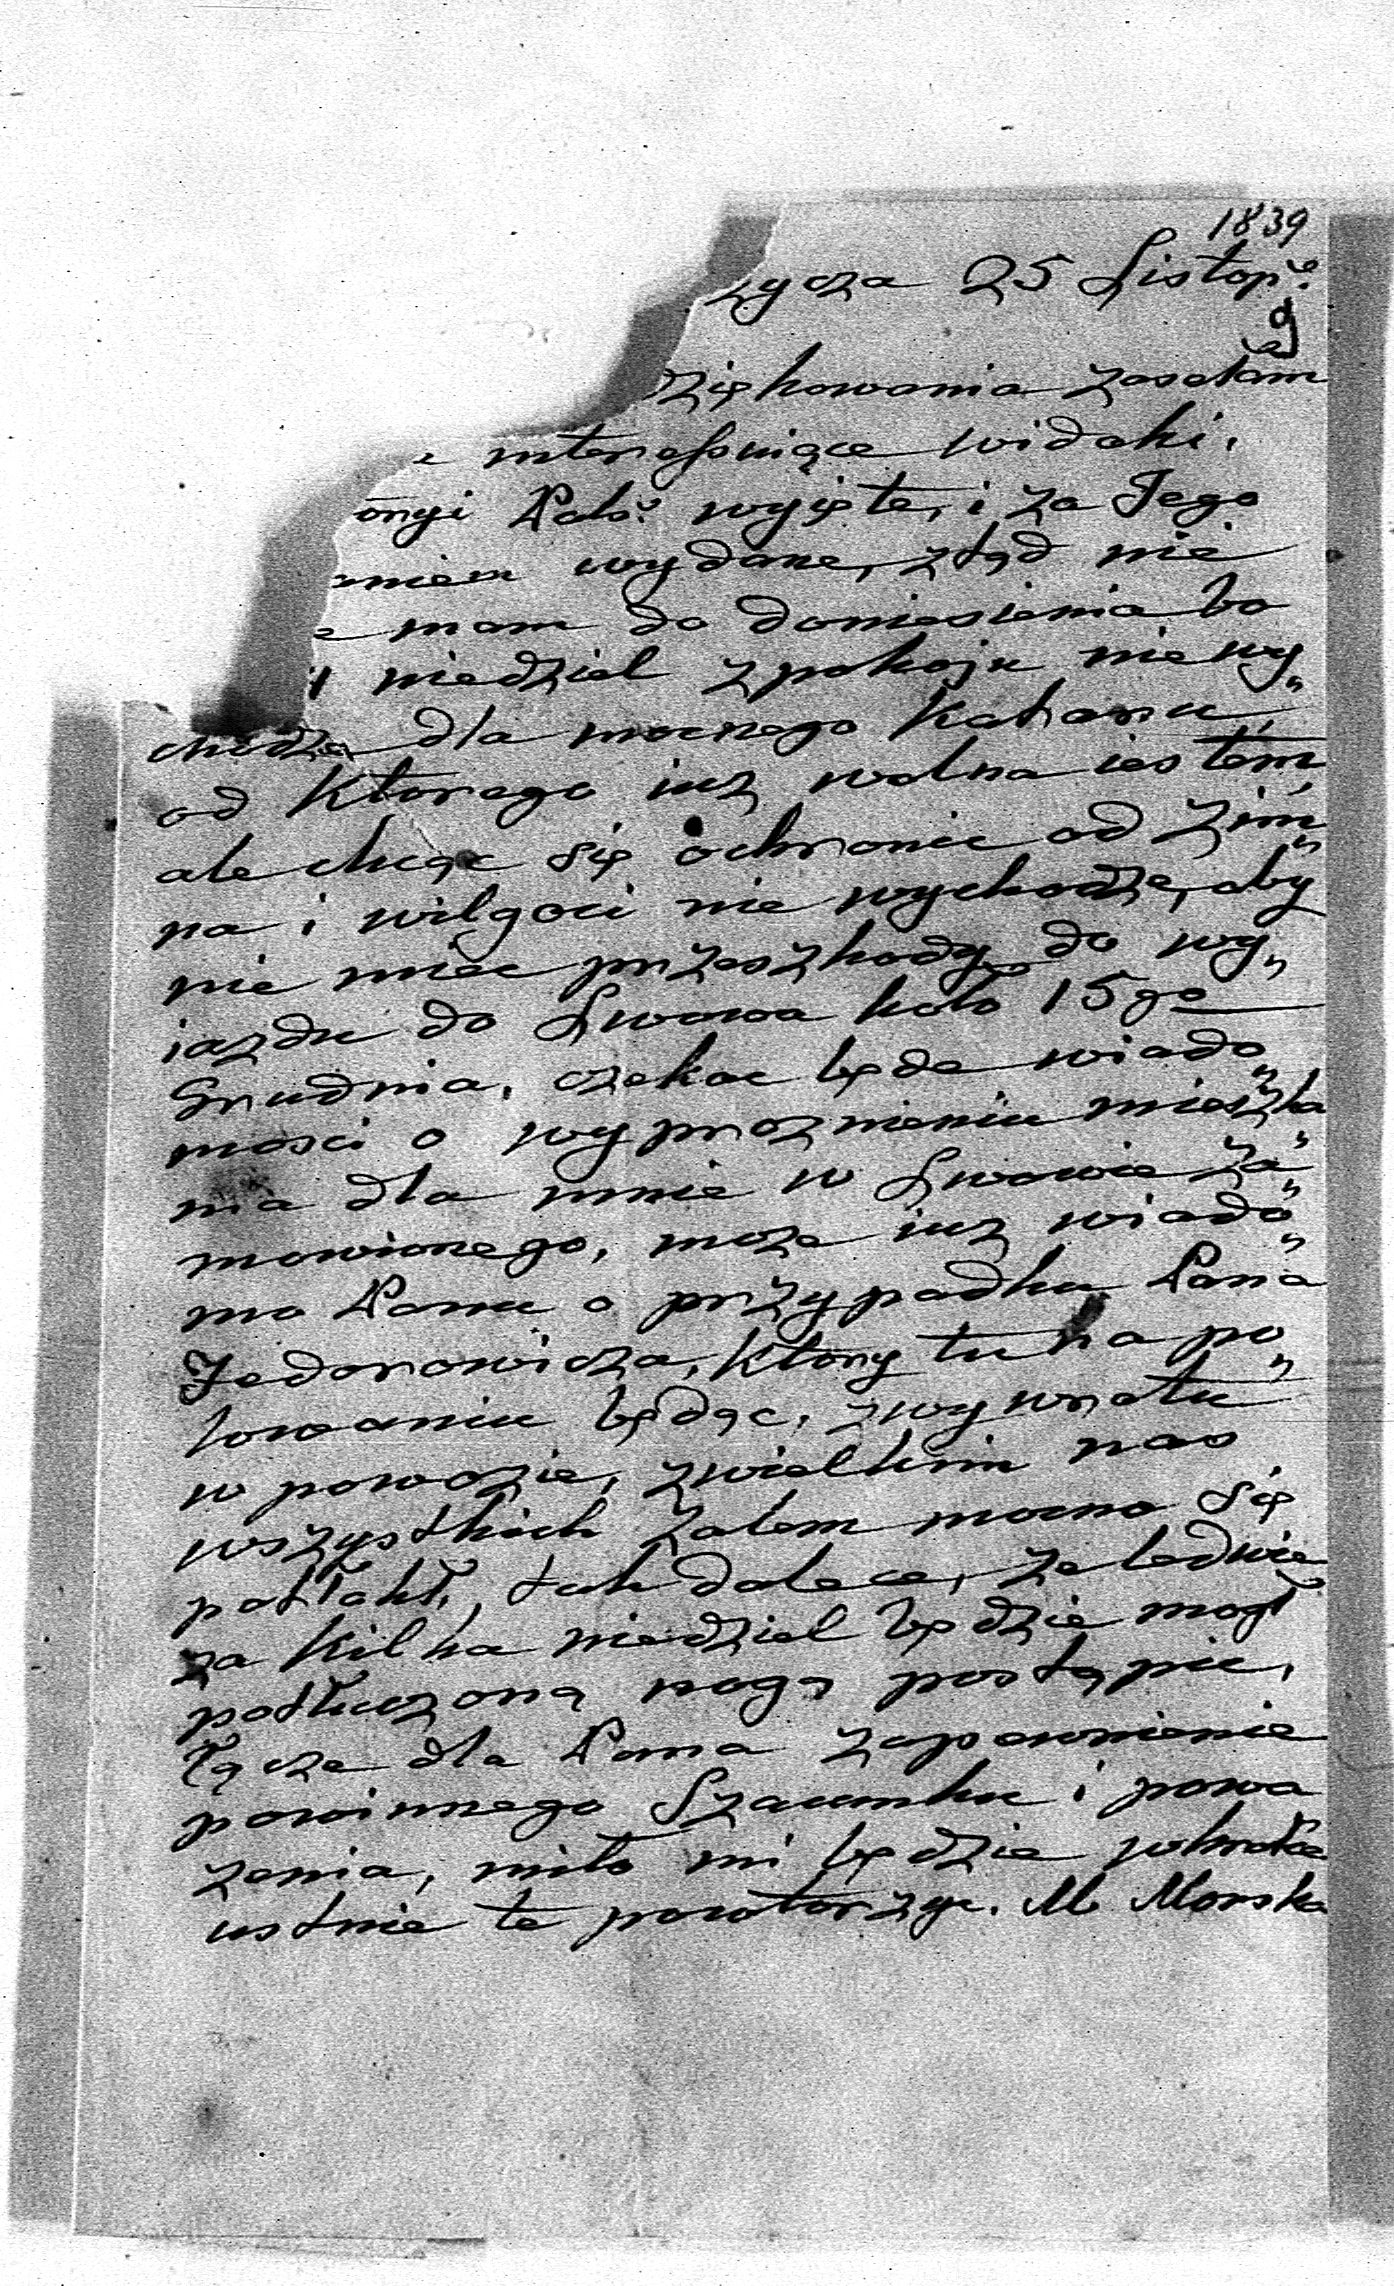 1839
zycza 25 Listopª.
9
dziękowania zasełam
e interessuiące widoki,
onyi Pols: wyięte, i za Jego
niem wydane, ztąd nie
e mam do doniesienia bo
niedziel z pokoju nie wy„
chodzę dla mocnego Kataru„
od Ktorego iuz wolna iestem,
ale chcąc się ochronic od zim„
na i wilgoci nie wychodzę, aby
nie miec przeszkody do wy„
jazdu do Lwowa koło 15go
Grudnia. czekac będe wiado„
mosci o wyproznieniu mieszka„
nia dla mnie w Lwowie za„
mowionego, moze iuz wiado„
mo Panu o przypadku Pana
Fedorowicza, Ktory tu na po„
lowaniu będąc, z wywrotu
w powozie, z wielkim nas
wszystkich zalem mocno się
potłukł, tak dalece, ze ledwie
za Kilka niedziel będzie mogł
potłuczoną nogą postąpic,
Łącze dla Pana zapewnienie
powinnego Szacunku i powa
zenia, miło mi będzie wkrotce
ustnie te powtorzyc. M. Morska